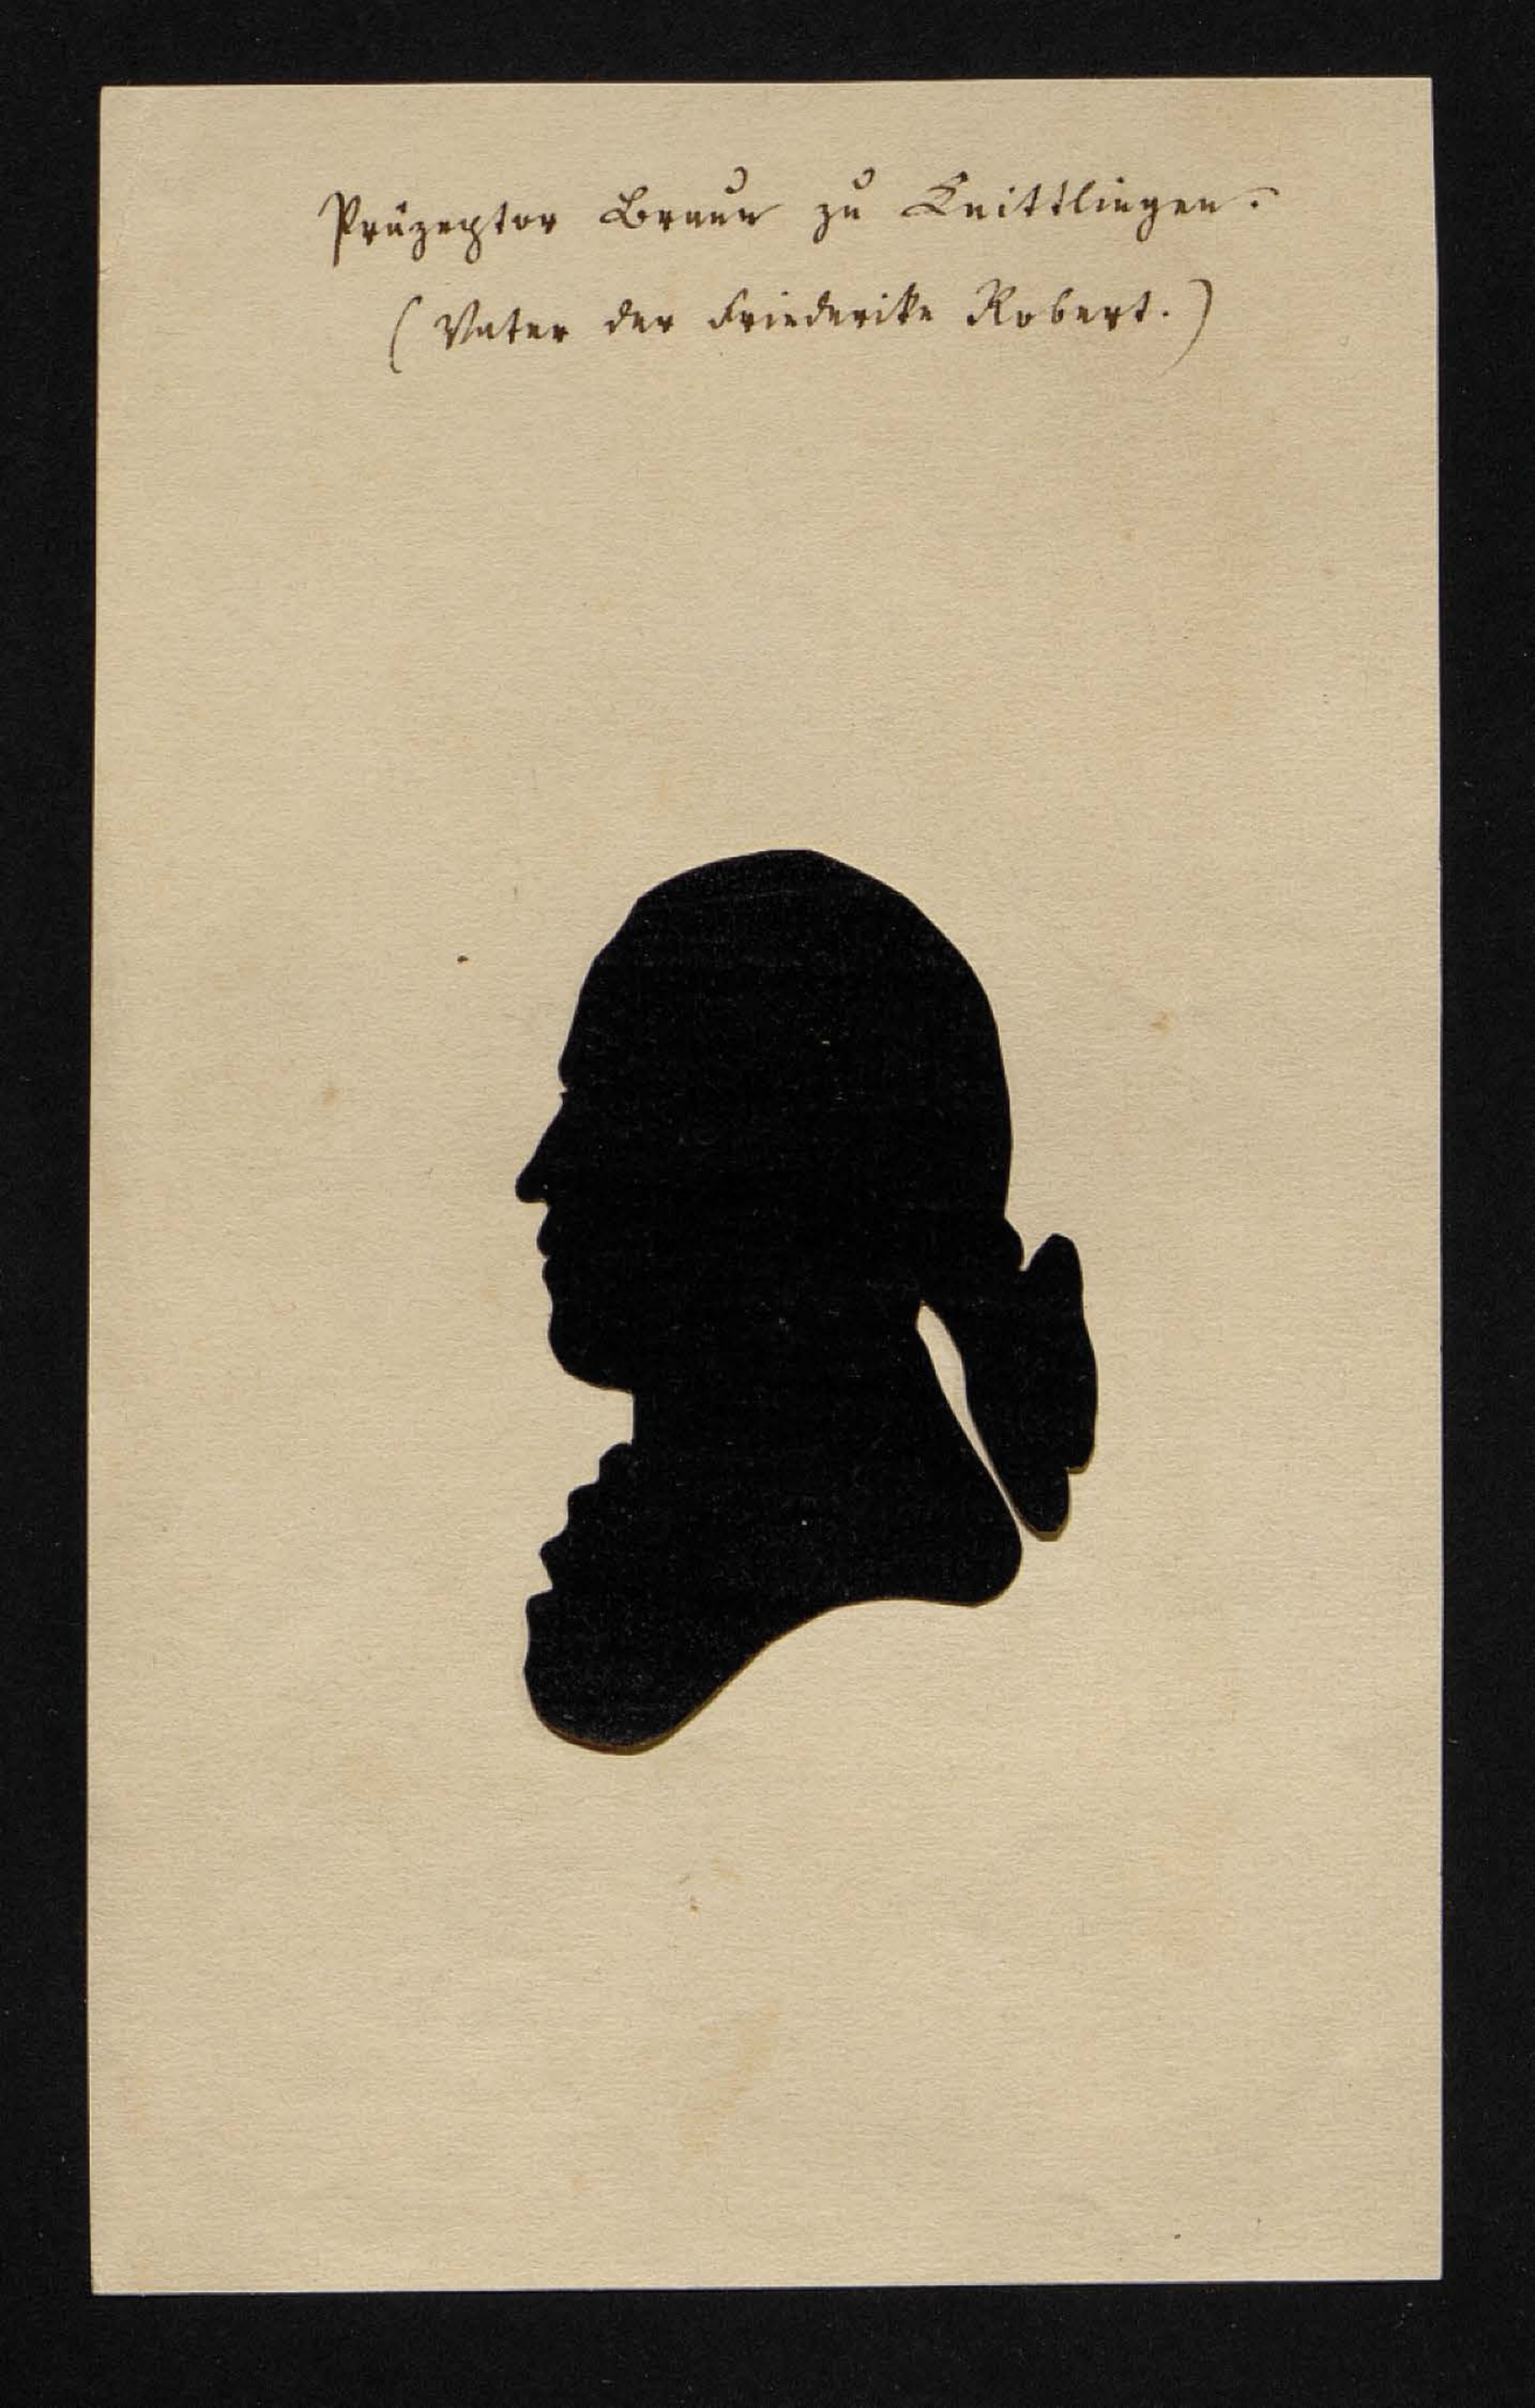 Präzeptor Braun zu Knittlingen.
(Vater der Friederike Robert.)